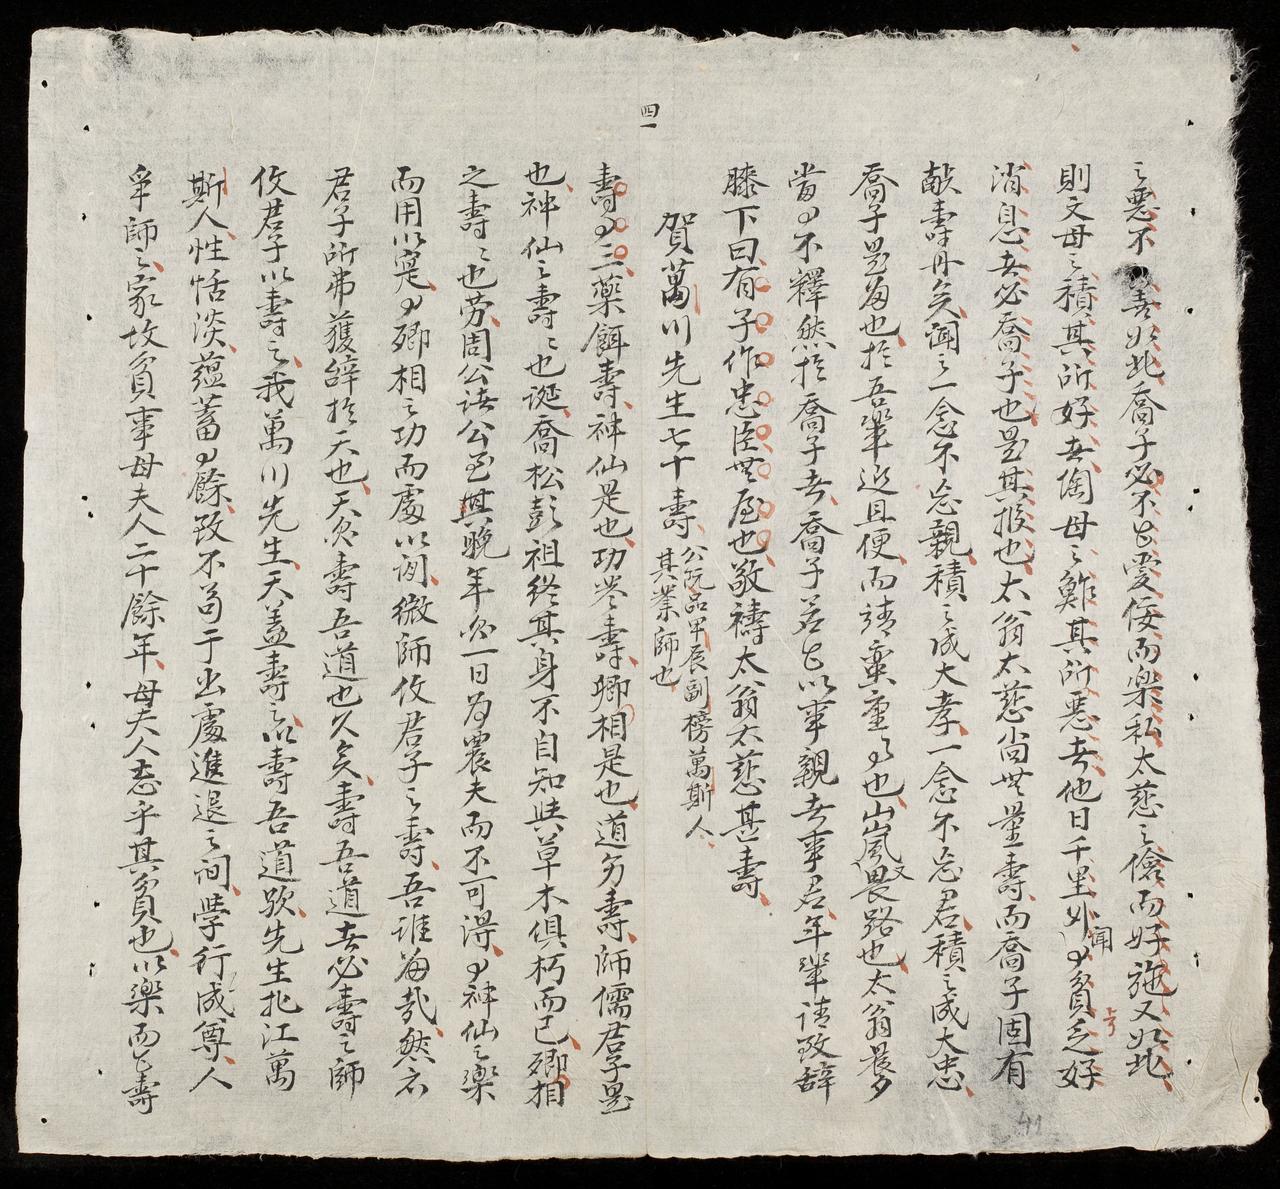 四一
之惡不喜如此喬子必不㠯愛佞而樂私太慈之儉而好施又如此
則文母之積其所好者陶母之鮓其所惡者他日千里外聞有貧乏好
消息者必喬子也是其報也太翁太慈尚無量壽而喬子固有
献壽丹矣聞之一念不忘親積之成大孝一念不忘君積之成大忠
喬子是為也於吾輩近且便而請蛮重有也嵐畏路也太翁晨夕
當有不釋然於喬子者喬子若㠯以事親者事君年輩請致辞
膝下曰有子作忠臣無屈也敬禱太翁太慈甚壽
賀萬川先生七十壽
公阮品甲辰副榜萬斯人
其業師也
壽有三藥餌壽神仙是也功業壽卿相是也道多壽師儒君子是
也神仙之壽之也誕喬松彭祖終其身不自知與草木俱朽而已卿相
之壽之也勞周公詩公至其晚年求一日為農夫而不可得有神仙之樂
而用以寔有卿相之功而處以闲微師攸君子之壽吾誰為哉然不
君子所弗獲辞於天也天欲壽吾道也久矣壽吾道者必壽之師
攸君子以壽之我萬川先生天盖壽之以壽吾道歟先生北江萬
斯人性恬淡蕴蓄有餘致不苟于出處進退之间學行成尊人
爭師之家故貧事母夫人二十餘年母夫人志乎其貧也以樂而㠯壽